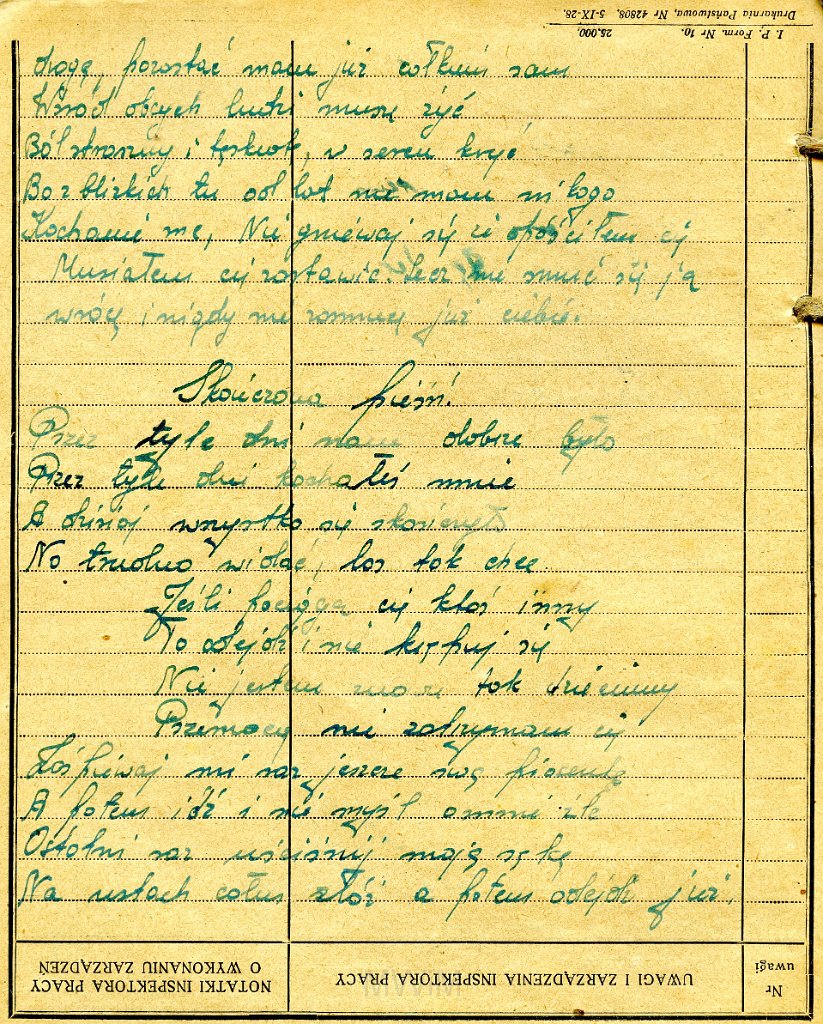 drogę, pozostać mam już całkiem sam
Wśród obcych ludzi muszę żyć
Ból straszny i tęsknotę, w sercu kryć
Bo z blizkich tu od lat nie mam nikogo
Kochanie me, Nie gniewaj się że opóściłem cię
Musiałem cię zostawić. Lecz nie smuć się ja
wrócę i nigdy nie zonucę już ciebie.
Skończona pieśń!
Przez tyle dni nam dobrze było
Przez tyle dni kochałeś mnie
A dzisiaj wszystko się skończyło
No trudno widać, los tak chce
Jeśli pociąga cię ktoś inny
To odejdź i nie krępuj się
Nie jestem znow tak dziecinny
Przemocą nie zatrzymam cię
Zaśpiewaj mi raz jeszcze swą piosenkę
A potem idź i nie myśl o mnie źle
Ostatni raz uściśnij moją rękę
Na ustach całus złóż a potem odejdź już.
I. P. Form. Nr 10. 25.000.
Drukarnia Państwowa, Nr 42808. 5-IX-28.
Nr uwagi
UWAGI I ZARZĄDZENIA INSPEKTORA PRACY
NOTATKI INSPEKTORA PRACY
O WYKONANIU ZARZĄDZEŃ